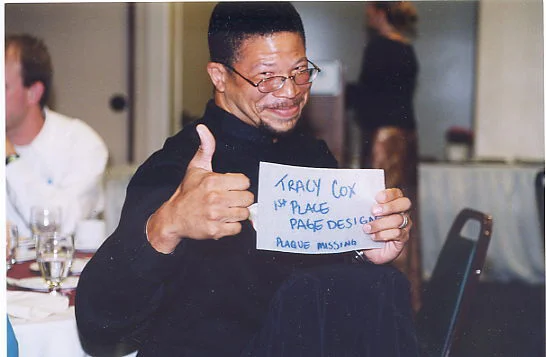 TRACY COX
1ST PLACE
PAGE DESIGN
PLAQUE MISSING